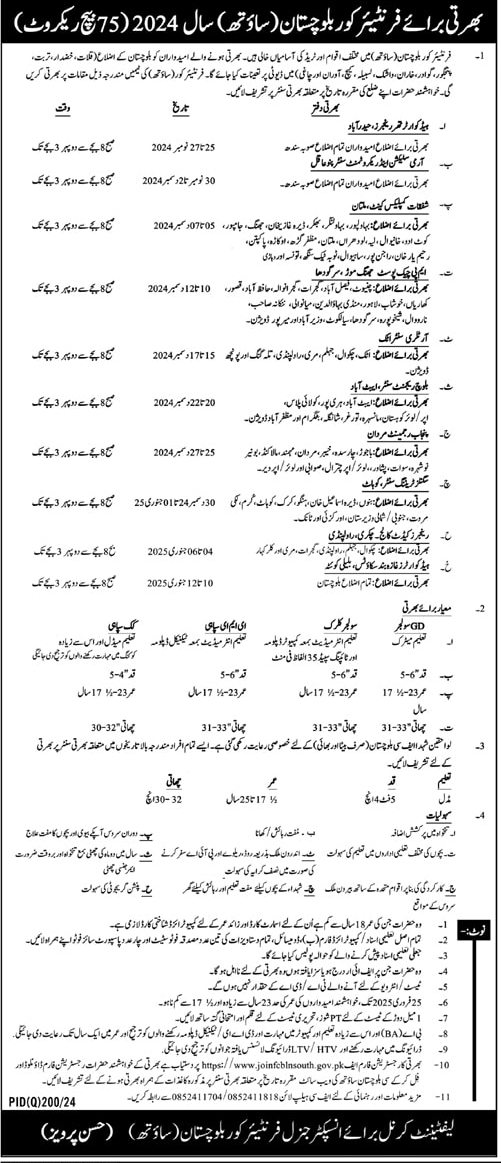 بھرتی برائے فرنٹیئر کور بلوچستان (ساؤتھ) سال 2024 (75 بیچ ریکروٹ)
1- فرنٹیئر کور بلوچستان (ساؤتھ) میں مختلف اقوام اور ٹریڈ کی آسامیاں خالی ہیں۔ بھرتی ہونے والے امیدواران کو بلوچستان کے اضلاع (قلات، خضدار، تربت،
پنجگور، گوادر، خاران، واشک، لسبیلہ، کیچ، آوران اور چاغی) میں ڈیوٹی پر تعینات کیا جائے گا۔ فرنٹیئر کور (ساؤتھ) کی ٹیمیں مندرجہ ذیل مقامات پر بھرتی کریں
گی۔ خواہشمند حضرات اپنے ضلع کی مقررہ تاریخ پر متعلقہ بھرتی سنٹر پر تشریف لائیں۔
بھرتی دفتر تاریخ وقت
ا۔ ہیڈکوارٹر تھر رینجرز، حیدرآباد
بھرتی برائے اضلاع امیدواران تمام اضلاع صوبہ سندھ 25 تا 27 نومبر 2024 صبح 8 بجے سے دوپہر 3 بجے تک
ب۔ آرمی سلیکشن اینڈ ریکروٹمنٹ سنٹر پنوعاقل
بھرتی برائے اضلاع امیدواران تمام اضلاع صوبہ سندھ۔ 30 نومبر تا 2 دسمبر 2024 صبح 8 بجے سے دوپہر 3 بجے تک
پ۔ شفقات کمپلیکس کینٹ، ملتان
بھرتی برائے اضلاع: بہاولپور، بہاولنگر، بھکر، ڈیرہ غازیخان، جھنگ، جامپور، 05 تا 07 دسمبر 2024 صبح 8 بجے سے دوپہر 3 بجے تک
کوٹ ادو، خانیوال، لیہ، لودھراں، ملتان، مظفر گڑھ، اوکاڑہ، پاکپتن،
رحیم یار خان، راجن پور، ساہیوال، ٹوبہ ٹیک سنگھ، تونسہ اور وہاڑی
ت۔ ایم پی چیک پوسٹ جھنگ موڑ، سرگودھا
بھرتی برائے اضلاع: چنیوٹ، فیصل آباد، گجرات، گجرانوالہ، حافظ آباد، قصور، 10 تا 12 دسمبر 2024 صبح 8 بجے سے دوپہر 3 بجے تک
کھاریاں، خوشاب، لاہور، منڈی بہاؤالدین، میانوالی، ننکانہ صاحب،
نارووال، شیخوپورہ، سرگودھا، سیالکوٹ، وزیرآباد اور میرپور ڈویژن۔
ٹ۔ آرٹلری سنٹر اٹک
بھرتی برائے اضلاع: اٹک، چکوال، جہلم، مری، راولپنڈی، تلہ گنگ اور پونچھ 15 تا 17 دسمبر 2024 صبح 8 بجے سے دوپہر 3 بجے تک
ڈویژن۔
ث۔ بلوچ رجمنٹ سنٹر، ایبٹ آباد
بھرتی برائے اضلاع: ایبٹ آباد، ہری پور، کولائی پلاس، 20 تا 22 دسمبر 2024 صبح 8 بجے سے دوپہر 3 بجے تک
اپر/لوئر کوہستان، مانسہرہ، تورغر، شانگلہ، بٹگرام اور مظفر آباد ڈویژن۔
ج۔ پنجاب رجمنٹ مردان
بھرتی برائے اضلاع: باجوڑ، چارسدہ، خیبر، مردان، مہمند، مالاکنڈ، بونیر 25 تا 27 دسمبر 2024 صبح 8 بجے سے دوپہر 3 بجے تک
نوشہرہ، سوات، پشاور، لوئر/اپر چترال، صوابی اور لوئر/اپر دیر۔
چ۔ سگنلز ٹریننگ سنٹر، کوہاٹ
بھرتی برائے اضلاع: بنوں، ڈیرہ اسماعیل خان، ہنگو، کرک، کوہاٹ، کرم، لکی 30 دسمبر 24 تا 01 جنوری 25 صبح 8 بجے سے دوپہر 3 بجے تک
مروت، جنوبی/شمالی وزیرستان، اورکزئی اور ٹانک۔
ح۔ رینجرز کیڈٹ کالج، چکری، راولپنڈی
بھرتی برائے اضلاع: چکوال، جہلم، راولپنڈی، گجرات، مری اور کلرکہار 04 تا 06 جنوری 2025 صبح 8 بجے سے دوپہر 3 بجے تک
خ۔ ہیڈکوارٹرز غازہ بند سکاؤٹس، بلیلی کوئٹہ
بھرتی برائے اضلاع: تمام اضلاع بلوچستان 10 تا 12 جنوری 2025 صبح 8 بجے سے دوپہر 3 بجے تک
2- معیار برائے بھرتی
GD سولجر سولجر کلرک ای ایم ای سپاہی کک سپاہی
ا۔ تعلیم میٹرک تعلیم انٹرمیڈیٹ بمعہ کمپیوٹر ڈپلومہ تعلیم انٹرمیڈیٹ بمعہ ٹیکنیکل ڈپلومہ تعلیم مڈل اور اس سے زیادہ
اور ٹائپنگ سپیڈ 35 الفاظ فی منٹ کوکنگ میں مہارت رکھنے والوں کو ترجیح دی جائیگی
ب۔ قد "6-5 قد "6-5 قد "6-5 قد "4-5
پ۔ عمر 23-½ 17 عمر 23-½ 17 سال عمر 23-½ 17 سال عمر 23-½ 17 سال
سال
ت۔ چھاتی "33-31 چھاتی "33-31 چھاتی "33-31 چھاتی "32-30
3- لواحقین شہدا ایف سی بلوچستان (صرف بیٹا اور بھائی) کے لئے خصوصی رعایت رکھی گئی ہے۔ ایسے تمام افراد مندرجہ بالا تاریخوں میں متعلقہ بھرتی سنٹر پر بھرتی
کے لئے تشریف لائیں۔
تعلیم قد عمر چھاتی
مڈل 5 فٹ 4 انچ ½ 17 تا 25 سال 32-30 انچ
4- سہولیات
ا۔ تنخواہ میں پرکشش اضافہ ب۔ مفت رہائش/کھانا پ۔ دوران سروس آپکے بیوی اور بچوں کا مفت علاج
ت۔ بچوں کی مختلف تعلیمی اداروں میں تعلیم کی سہولت ٹ۔ اندرون ملک بذریعہ روڈ، ریلوے اور پی آئی اے سفر کرنے ث۔ سال میں دو ماہ کی چھٹی بمع تنخواہ اور بروقت ضرورت
کی صورت میں نصف کرایہ کی سہولت ایمرجنسی چھٹی
ج۔ کارکردگی کی بنا پر اقوام متحدہ کے ساتھ بیرون ملک چ۔ شہداء کے بچوں کیلئے مفت تعلیم اور رہائش کیلئے گھر ح۔ پنشن گریجوئی کی سہولت
سروس کے مواقع
نوٹ:-
1- وہ حضرات جن کی عمر 18 سال سے کم ہے اُن کے لئے اسمارٹ کارڈ اور زائد عمر کے لئے کمپیوٹرائزڈ شناختی کارڈ لازمی ہے۔
2- تمام اصل تعلیمی اسناد/کمپیوٹرائزڈ فارم (ب)، ڈومیسائل، تمام دستاویزات کی تین عدد مصدقہ فوٹو سٹیٹ اور چار عدد پاسپورٹ سائز فوٹو اپنے ہمراہ لائیں۔
3- جعلی تعلیمی اسناد پیش کرنے والے کو حوالہ پولیس کیا جائے گا۔
4- وہ حضرات جن پر ایف آئی آر درج ہو یا سزا یافتہ ہوں وہ بھرتی کے لئے نااہل ہو گا۔
5- ٹیسٹ/انٹرویو کے لئے آنے والے ٹی اے/ڈی اے کے حقدار نہیں ہوں گے۔
6- 25 فروری 2025 تک، خواہشمند امیدواروں کی عمر کی حد 23 سال سے زیادہ اور ½ 17 سے کم نا ہو۔
7- 1 میل دوڑ کے ٹیسٹ کے لئے PT شوز، تحریری ٹیسٹ کے لئے قلم اور امتحانی گتہ ساتھ لائیں۔
8- بی اے (BA) اور اس سے زیادہ تعلیم اور کمپیوٹر میں مہارت اور ڈی اے ای/ٹیکنیکل ڈپلومہ رکھنے والوں کو ترجیح اور عمر میں ایک سال تک رعایت دی جائیگی۔
9- ڈرائیونگ میں مہارت رکھنے اور LTV/HTV ڈرائیونگ لائسنس یافتہ جوانوں کو ترجیح دی جائیگی۔
10- بھرتی کا رجسٹریشن فارم ایف سی ویب سائٹ https://www.joinfcblnsouth.gov.pk پر دستیاب ہے بھرتی کے خواہشمند حضرات رجسٹریشن فارم ڈاؤنلوڈ اور
فل کر کے سی بلوچستان ساؤتھ کی ویب سائٹ مقررہ تاریخ پر متعلقہ بھرتی سنٹر پر مذکورہ کاغذات کے ہمراہ بھرتی ہونے کے لئے تشریف لائیں۔
11- مزید معلومات اور رہنمائی کے لئے ایف سی ہیلپ لائن 0852411704/0852411818 سے رابطہ کریں۔
PID(Q)200/24
لیفٹیننٹ کرنل برائے انسپکٹر جنرل فرنٹیئر کور بلوچستان (ساؤتھ) (حسن پرویز)